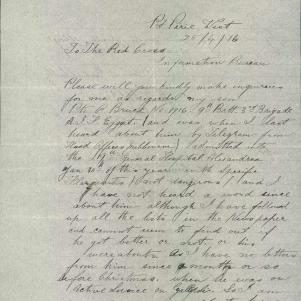 Pt Pirie, West
25/4/16
To The Red Cross
Information Bureau
Please will you kindly make inquiries
for me as regards my son
Pte C. Bruce No 1916. 9th Batt 3rd Brigade
A.I.F. Egypt and was when I last
heard about him by Telegram from
Head Office Melbourne admitted into
the General Hospital Alexandria
Jan 20th of this year with specific
(not dangerous) and I
have not heard a word since
about him although I have followed
up all the lists in the Newspaper
and cannot seem to find out if
he got better or not, or his
whereabouts. As I have no letters
from him since a month or so
before Christmas, when he was on
Active Service on Gallipoli. So I am